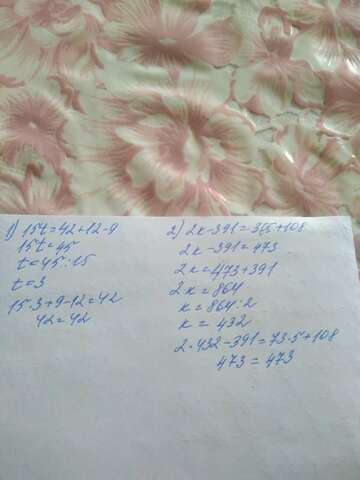 1) 15t=42+12-9
15t=45
t=45:15
t=3
15·3+9-12=42
42=42
2) 2k-391=365+108
2k-391=473
2k=473+391
2k=864
k=864:2
k=432
2·432-391=73·5+108
473=473